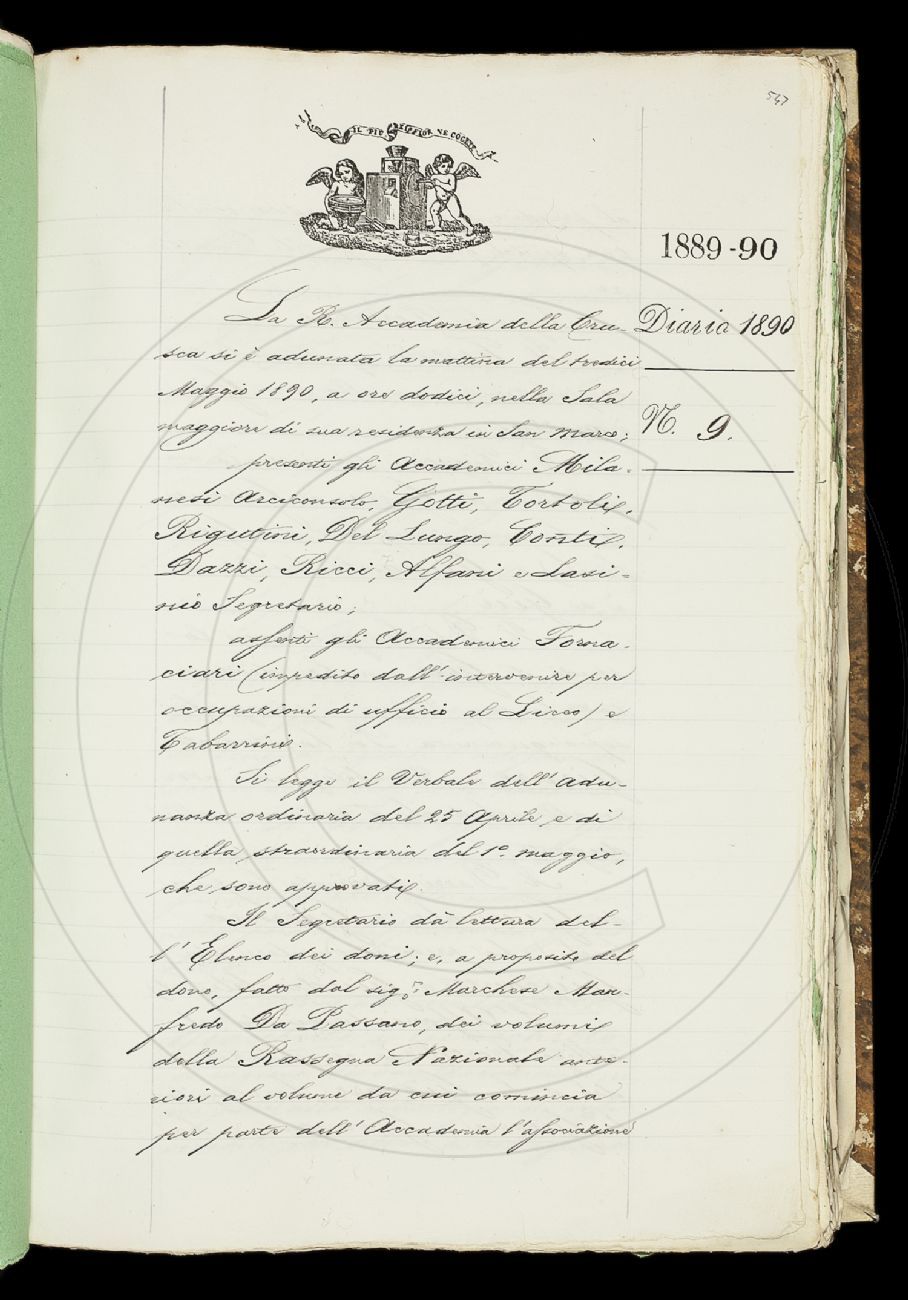 547
IL PIÙ BEL FIOR NE COGLIE
1889-90
Diario 1890
N. 9.
La R. Accademia della Cru-
sca si è adunata la mattina del tredici
Maggio 1890, a ore dodici, nella Sala
maggiore di sua residenza in San Marco;
presenti gli Accademici Mila-
nesi Arciconsolo, Gotti, Tortoli,
Rigutini, Del Lungo, Conti,
Dazzi, Ricci, Alfani e Lasi-
nio Segretario;
assenti gli Accademici Forna-
ciari (impedito dall'intervenire per
occupazioni di ufficio al Liceo) e
Tabarrini.
Si legge il Verbale dell'adu-
nanza ordinaria del 25 Aprile e di
quella straordinaria del 1º. maggio,
che sono approvati.
Il Segretario dà lettura del-
l'Elenco dei doni; e, a proposito del
dono, fatto dal sig.r Marchese Man-
fredo Da Passano, dei volumi
della Rassegna Nazionale ante-
riori al volume da cui comincia
per parte dell'Accademia l'associazione